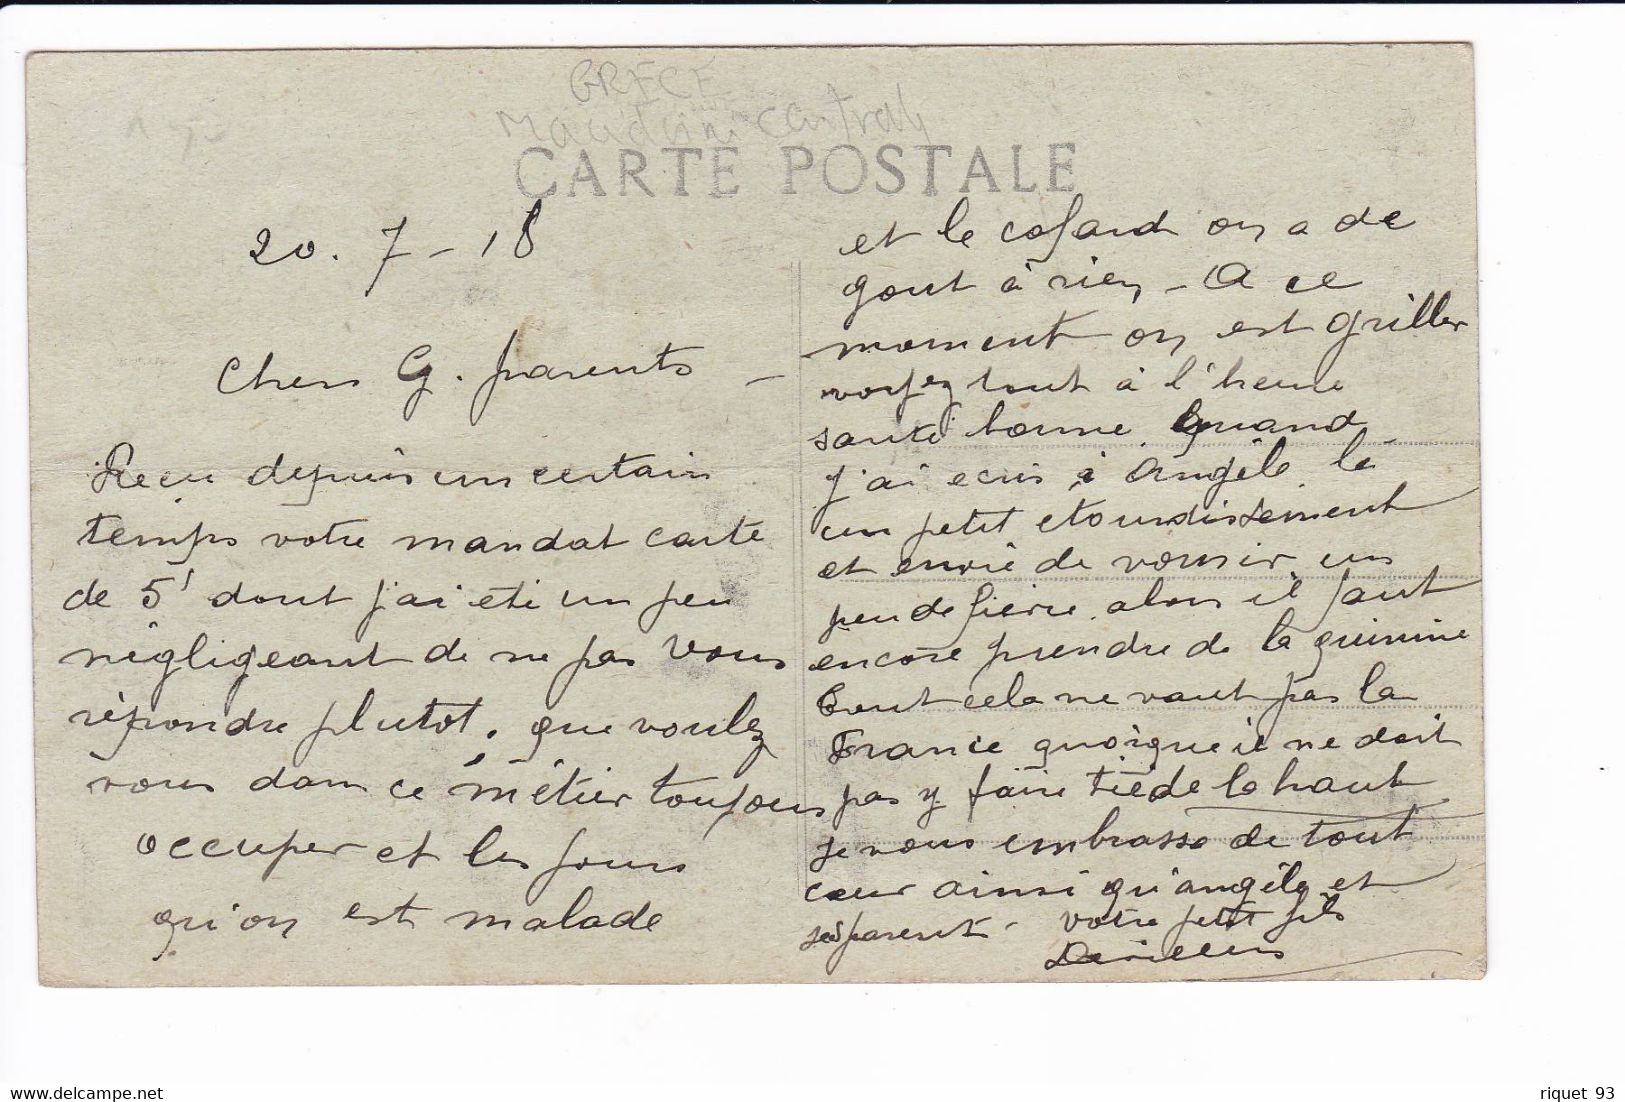 GRECE
CARTE POSTALE
20. 7 - 18
Chers G. parents -
Recu depuis un certain
temps votre mandat carte
de 5f dont j'ai été un peu
négligeant de ne pas vous
répondre plutot. que voulez
vous dans ce métier toujours
occuper et les jours
qu'on est malade
et le cafard on a de
gout à rien - A ce
moment on est griller
voyez tout à l'heure
santé bonne. Quand
j'ai ecris à Angèle le
un petit etourdissement
et envie de vomir un
peu de fièvre alors il faut
encore prendre de la quinine
tout cela ne vaut pas la
France quoique il ne doit
pas y faire tiède la haut
je vous embrasse de tout
cœur ainsi qu'angèle et
ses parent - votre petit fils
riquet 93